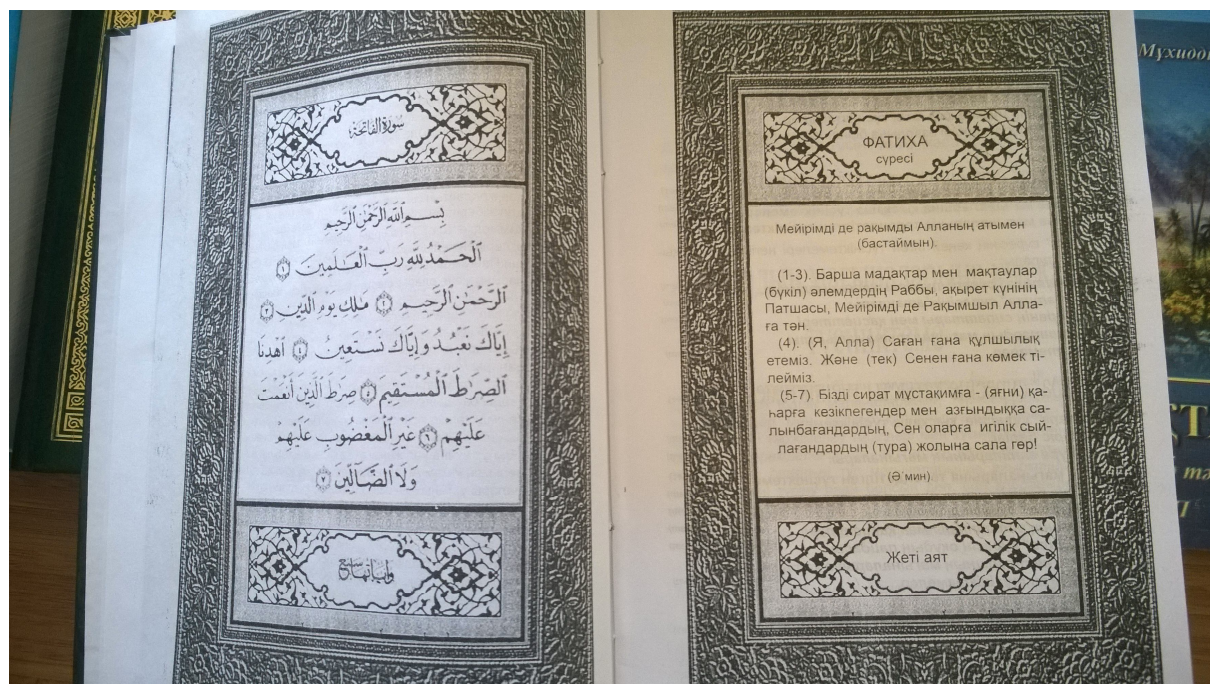 سورة الفاتحة
بِسْمِ ٱللَّهِ ٱلرَّحْمَٰنِ ٱلرَّحِيمِ
ٱلْحَمْدُ لِلَّهِ رَبِّ ٱلْعَٰلَمِينَ ١
ٱلرَّحْمَٰنِ ٱلرَّحِيمِ ٢ مَٰلِكِ يَوْمِ ٱلدِّينِ ٣
إِيَّاكَ نَعْبُدُ وَإِيَّاكَ نَسْتَعِينُ ٤ ٱهْدِنَا
ٱلصِّرَٰطَ ٱلْمُسْتَقِيمَ ٥ صِرَٰطَ ٱلَّذِينَ أَنْعَمْتَ
عَلَيْهِمْ ٦ غَيْرِ ٱلْمَغْضُوبِ عَلَيْهِمْ
وَلَا ٱلضَّآلِّينَ ٧
وآياتها سبع
ФАТИХА
сүресі
Мейірімді де рақымды Алланың атымен
(бастаймын).
(1-3). Барша мадақтар мен мақтаулар
(бүкіл) әлемдердің Раббы, ақырет күнінің
Патшасы, Мейірімді де Рақымшыл Алла-
ға тән.
(4). (Я, Алла) Саған ғана құлшылық
етеміз. Және (тек) Сенен ғана көмек ті-
лейміз.
(5-7). Бізді сират мұстақимға - (яғни) қа-
һарға кезікпегендер мен азғындыққа са-
лынбағандардың, Сен оларға игілік сый-
лағандардың (тура) жолына сала гөр!
(Ә`мин).
Жеті аят